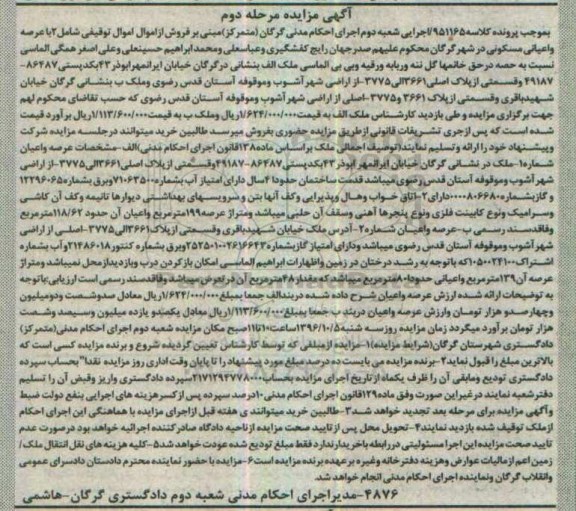 آگهی مزایده مرحله دوم
بموجب پرونده کلاسه ۹۵۱۱۶۵/اجرایی شعبه دوم اجرای احکام مدنی گرگان (متمرکز) مبنی بر فروش از اموال اموال توقیفی شامل ۲ باعرصه
واعیانی مسکونی در شهر گرگان محکوم علیهم صدرجهان رایج کفشگیری وعباسعلی ومحمدابراهیم حسینعلی وعلی اصغر همگی الماسی
نسبت به حصه درحق خانمها گل ننه وربابه ورقیه وبی بی الماسی ملک الف بنشانی درگرگان خیابان ایرانمهر ابوذر ۴۳ کدپستی ۸۶۴۸۷-
۴۹۱۸۷ وقسمتی از پلاک اصلی ۳۶۶۱ الی ۳۷۷۵- از اراضی شهر آشوب وموقوفه آستان قدس رضوی وملک ب بنشانی گرگان خیابان
شهیدباقری وقسمتی از پلاک ۳۶۶۱ و ۳۷۷۵-اصلی از اراضی شهر آشوب وموقوفه آستان قدس رضوی که حسب تقاضای محکوم لهم
جهت برگزاری مزایده و طی بازدید کارشناس ملک الف به قیمت ۱/۶۲۴/۰۰۰/۰۰۰ریال وملک ب به قیمت ۱/۱۱۳/۶۰۰/۰۰۰ریال برآورد قیمت
شده است که پس ازجری تشریفات قانونی ازطریق مزایده حضوری بفروش میرسد طالبین خرید میتوانند درجلسه مزایده شرکت
وپیشنهاد خود را ارائه وتسلیم نمایند(توصیف اجمالی ملک براساس ماده ۱۳۸قانون اجرای احکام مدنی)الف-مشخصات عرصه واعیان
شماره۱-ملک در نشانی گرگان خیابان ایرانمهر ابوذر ۴۳ کدپستی ۸۶۴۸۷-۴۹۱۸۷وقسمتی از پلاک اصلی ۳۶۶۱ الی ۳۷۷۵-از اراضی
شهر آشوب وموقوفه آستان قدس رضوی میباشد قدمت ساختمان حدودا ۴سال دارای امتیاز آب بشماره ۷۱۰۶۳۵۰۰وبرق بشماره ۱۲۲۹۶۰۶۵
و گازبشماره ۰۰۰۰۸۰۶۶۸۰دارای ۲-اتاق خواب وهال وپذیرایی وکف آنها بتن و سرویسهای بهداشتی دیوارها تانیمه وکف آن کاشی
وسرامیک ونوع کابینت فلزی ونوع پنجرها آهنی وسقف آن حلبی میباشد ومتراژ عرصه ۱۹۹مترمربع واعیان آن حدود ۱۱۸/۶۲مترمربع
وفاقدسند رسمی ب-عرصه واعیان شماره۲- آدرس ملک خیابان شهیدباقری وقسمتی ازپلاک ۳۶۶۱الی ۳۷۷۵-اصلی از اراضی
شهر آشوب وموقوفه آستان قدس رضوی میباشد ودارای امتیاز گاز بشماره ۲۵۲۵۰۱۰۰۲۶۱۶۶۴۳وبرق بشماره کنتور ۲۱۴۸۶۰۱۸و آب بشماره
اشتراک ۱۰۵۰۰۲۴۱۰۰که باتوجه به رشد درختان در زمین واظهارات ابراهیم الماسی امکان بازکردن درب وبازدیدازمحل نمیباشد ومتراژ
عرصه آن۱۳۹مترمربع واعیانی حدودا۸۰مترمربع میباشدکه مقدار۴۸مترمربع آن درعرض میباشد وفاقدسند رسمی است ارزیابی:باتوجه
به توضیحات ارائه شده ارزش عرصه واعیان شرح داده شده دربندالف جمعا بمبلغ ۱/۶۲۴/۰۰۰/۰۰۰ریال معادل صدوشصت ودومیلیون
وچهارصدو هزار تومان وارزش عرصه واعیان دربند ب جمعا بمبلغ ۱/۱۱۳/۶۰۰/۰۰۰ریال معادل یکصدو یازده میلیون وسیصد وشصت
هزار تومان برآورد میگردد زمان مزایده روزسه شنبه ۱۳۹۶/۱۰/۵ساعت ۱۰تا۱۱صبح مکان مزایده شعبه دوم اجرای احکام مدنی(متمرکز)
دادگستری شهرستان گرگان(شرایط مزایده)۱-مزایده از مبلغی که توسط کارشناس تعیین گردیده شروع و برنده مزایده کسی است که
بالاترین مبلغ را قبول نماید۲-برنده مزایده می بایست ده درصد مبلغ مورد پیشنهاد را تا پایان وقت اداری روز مزایده نقدا"بحساب سپرده
دادگستری تودیع ومابقی آن را ظرف یکماه ازتاریخ اجرای مزایده بحساب ۲۱۷۱۲۹۴۷۷۸۰۰۰سپرده دادگستری واریز وقبض آن را تسلیم
دفترشعبه نمایند درغیراین صورت وفق ماده ۱۲۹قانون اجرای احکام مدنی ۱۰درصد سپرده پس ازکسرهزینه های اجرایی بنفع دولت ضبط
و آگهی مزایده برای مرحله بعد تجدید خواهد شد۳-طالبین خرید میتوانند ی هفته قبل ازاجرای مزایده با هماهنگی این اجرای احکام
ازملک توقیف شده بازدید نمایند۴-تحویل محل پس از تایید صحت مزایده ازناحیه دادگاه صادرکننده اجرائیه خواهد بود درصورت عدم
تایید صحت مزایده این اجرا مسئولیتی دررابطه باخریدارندارد فقط مبلغ تودیع شده عودت خواهد شد۵-کلیه هزینه های نقل انتقال ملک/
زمین اعم ازمالیات عوارض وهزینه دفترخانه وغیره برعهده برنده مزایده است۶-مزایده با حضور نماینده محترم دادستان دادسرای عمومی
وانقلاب گرگان ونماینده اجرای احکام مدنی انجام خواهد شد.
۴۸۷۶-مدیر اجرای احکام مدنی شعبه دوم دادگستری گرگان-هاشمی